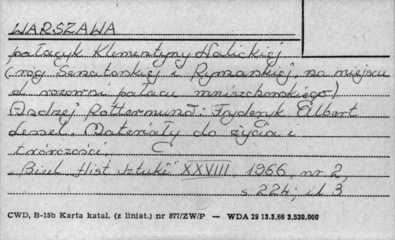 WARSZAWA
pałacyk Klementyny Walickiej
(róg Senatorskiej i Rymarskiej, na miejscu
d. pałacu mniszchowskiego)
Andrzej Rottermund: Fryderyk Albert
Lessel. Materiały do życia i
twórczości.
"Biul. Hist. Sztuki" XXVIII, 1966, nr 2,
s. 224; il. 3
CWD, B-15b Karta katal. (z liniat.) nr 877/ZW/P — WDA 29 13.5.66 3,520.000